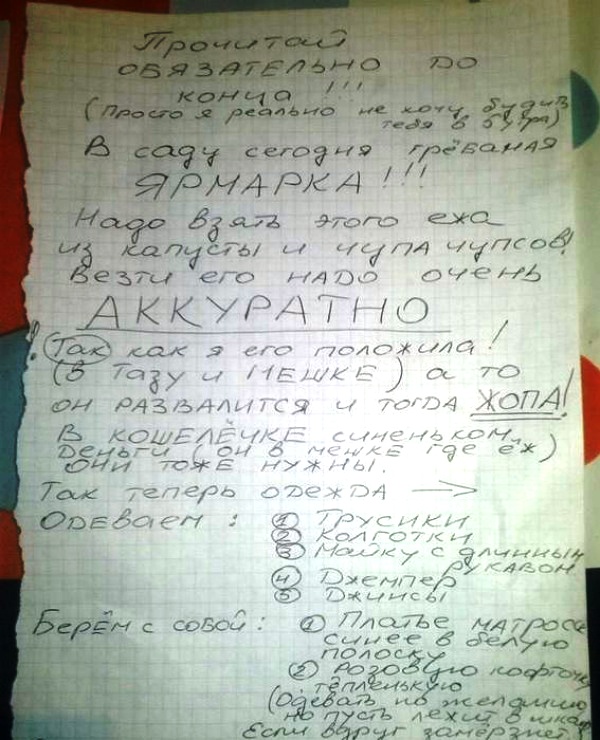 Прочитай
ОБЯЗАТЕЛЬНО ДО
КОНЦА !!!
(Просто я реально не хочу будить
тебя в 6 утра)
В саду сегодня грёбаная
ЯРМАРКА!!!
Надо взять этого ежа
из капусты и чупа чупсов!
Везти его НАДО очень
АККУРАТНО
! Так как я его положила!
(В тазу и МЕШКЕ) а то
ОН РАЗВАЛИТСЯ и тогда ЖОПА!
В КОШЕЛЁЧКЕ синеньком
Деньги (он в мешке где ёж)
ОНИ ТОЖЕ НУЖНЫ.
Так теперь одежда →
ОДЕВАЕМ: ① Трусики
② Колготки
③ Майку с длинным
рукавом
④ Джемпер
⑤ Джинсы
Берём с собой: ① Платье матроск
синее в белую
полоску
② розовую кофточку
тёпленькую
(Одевать по желанию
но пусть лежит в шкаф
Если вдруг замёрзнет